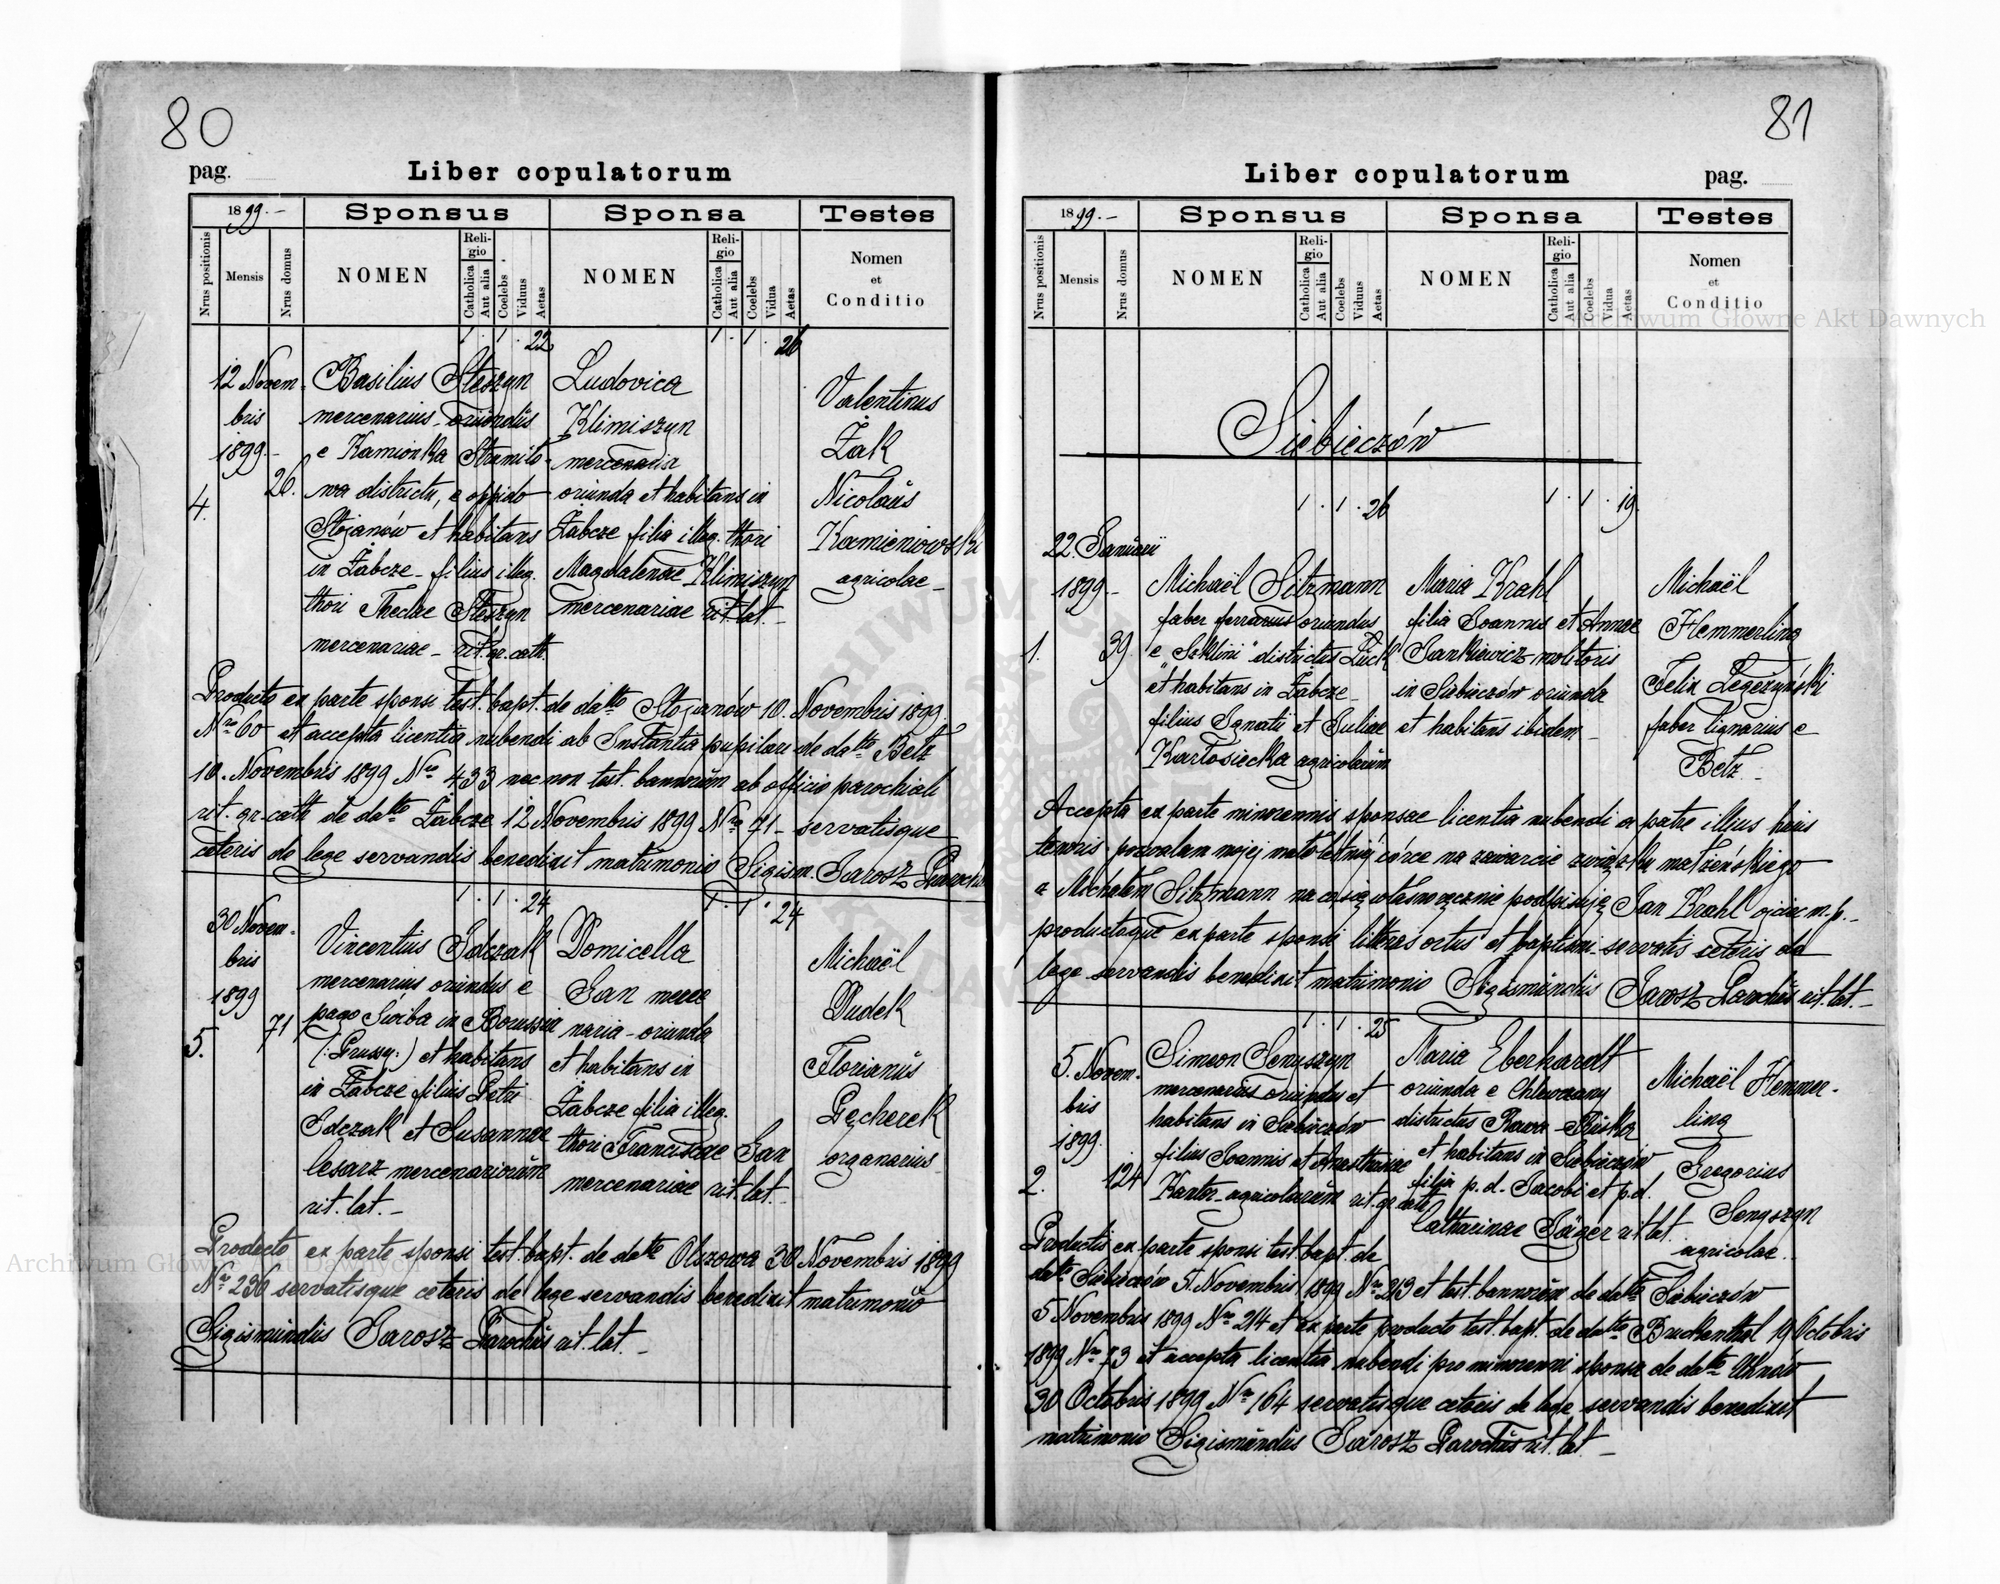 80
pag.
Liber copulatorum
1899.-
Sponsus
Sponsa
Testes
Nrus positionis
Mensis
Nrus domus
NOMEN
Religio
Catholica
Aut alia
Coelebs
Viduus
Aetas
NOMEN
Religio
Catholica
Aut alia
Coelebs
Vidua
Aetas
Nomen
et
Conditio
4.
12 Novem-
bris
1899.-
26.
1 . 1 . 22
Basilius Steszyn
mercenarius oriundus
e Kamionka Strumiło-
wa districtu, e oppido
Stojanów et habitans
in Żabcze - filius illeg.
thori Theclae Steszyn
mercenariae - rit. gr. cath.
1 . 1 . 26
Ludovica
Klimiszyn
mercenaria
oriunda et habitans in
Żabcze filia illeg. thori
Magdalenae Klimiszyn
mercenariae rit. lat. -
Valentinus
Żak
Nicolaus
Kamieniowski
agricolae -
Producto ex parte sponsi test. bapt. de datto Stojanów 10. Novembris 1899
Nro 60 et accepta licentia nubendi ab Instantia pupilari de datto Bełz
10. Novembris 1899 Nro 433 nec non test. bannorum ab officio parochiali
rit. gr. cath de datto Żabcze 12 Novembris 1899 Nro 71 - servatisque
ceteris de lege servandis benedixit matrimonio Sigism. Jarosz Parochus
5.
30 Novem-
bris
1899
71
1 . 1 . 24
Vincentius Idczak
mercenarius oriundus e
pago in Borussia
(: Prussy :) et habitans
in Żabcze filius Petri
Idczak et Susannae
Cesarz mercenariorum
rit. lat. -
1 . 1 . 24
Domicella
Gan merce
naria - oriunda
et habitans in
Żabcze filia illeg.
thori Franciscae Gan
mercenariae rit. lat. -
Michaël
Dudek
Florianus
Pęcherek
organarius
Producto ex parte sponsi test. bapt. de dato Olszowa 30 Novembris 1899
Nro 236 servatisque ceteris de lege servandis benedixit matrimonio
Sigismundus Jarosz Parochus rit. lat. -
81
Liber copulatorum
pag.
1899.-
Sponsus
Sponsa
Testes
Nrus positionis
Mensis
Nrus domus
NOMEN
Religio
Catholica
Aut alia
Coelebs
Viduus
Aetas
NOMEN
Religio
Catholica
Aut alia
Coelebs
Vidua
Aetas
Nomen
et
Conditio
Siebieczów
1.
22. Januarii
1899 -
39
1 . 1 . 26
Michaël Sitzmann
faber ferrarius oriundus
e districtus Łuck
et habitans in Żabcze
filius Ignatii et Juliae
agricolarum
1 . 1 . 19.
Maria Krahl
filia Joannis et Annae
Jankiewicz molitoris
in Siebieczów oriunda
et habitans ibidem -
Michaël
Hemmerling
Felix Legezyński
faber lignarius e
Bełz -
Accepta ex parte minorennis sponsae licentia nubendi a patre illius huius
tenoris: pozwalam mojej małoletniej córce na zawarcie związku małżeńskiego
z Michałem Sitzmann na co się własnoręcznie podpisuję Jan Krahl ojciec m.p. -
productoque ex parte sponsi litteris ortus et baptismi servatis ceteris de
lege servandis benedixit matrimonio Sigismundus Jarosz Parochus rit. lat. -
2.
5. Novem-
bris
1899.
124
1 . 1 . 25
Simeon Senyszyn
mercenarius oriundus et
habitans in Siebieczów
filius Joannis et Anasthasiae
Kantor agricolarum rit. gr. cath
Maria Eberhardt
oriunda e Chlewczany
districtus Rawa-Ruska
et habitans in Siebieczów
filia p.d. Jacobi et p.d.
Catharinae Jäger rit lat
Michaël Hemmer-
ling
Gregorius
Senyszyn
agricolae -
Productis ex parte sponsi test. bapt. de
datto Siebieczów 5. Novembris 1899 Nro 213 et test. bannorum de datto Siebieczów
5 Novembris 1899 Nro 214 et ex parte producto test. bapt. de datto Bruckenthal 19 Octobris
1899 Nro 73 et accepta licentia nubendi pro minorenni sponsa de datto Uhnów
30 Octobris 1899 Nro 164 servatisque ceteris de lege servandis benedixit
matrimonio Sigismundus Jarosz Parochus rit. lat -
Archiwum Główne Akt Dawnych
Archiwum Główne Akt Dawnych